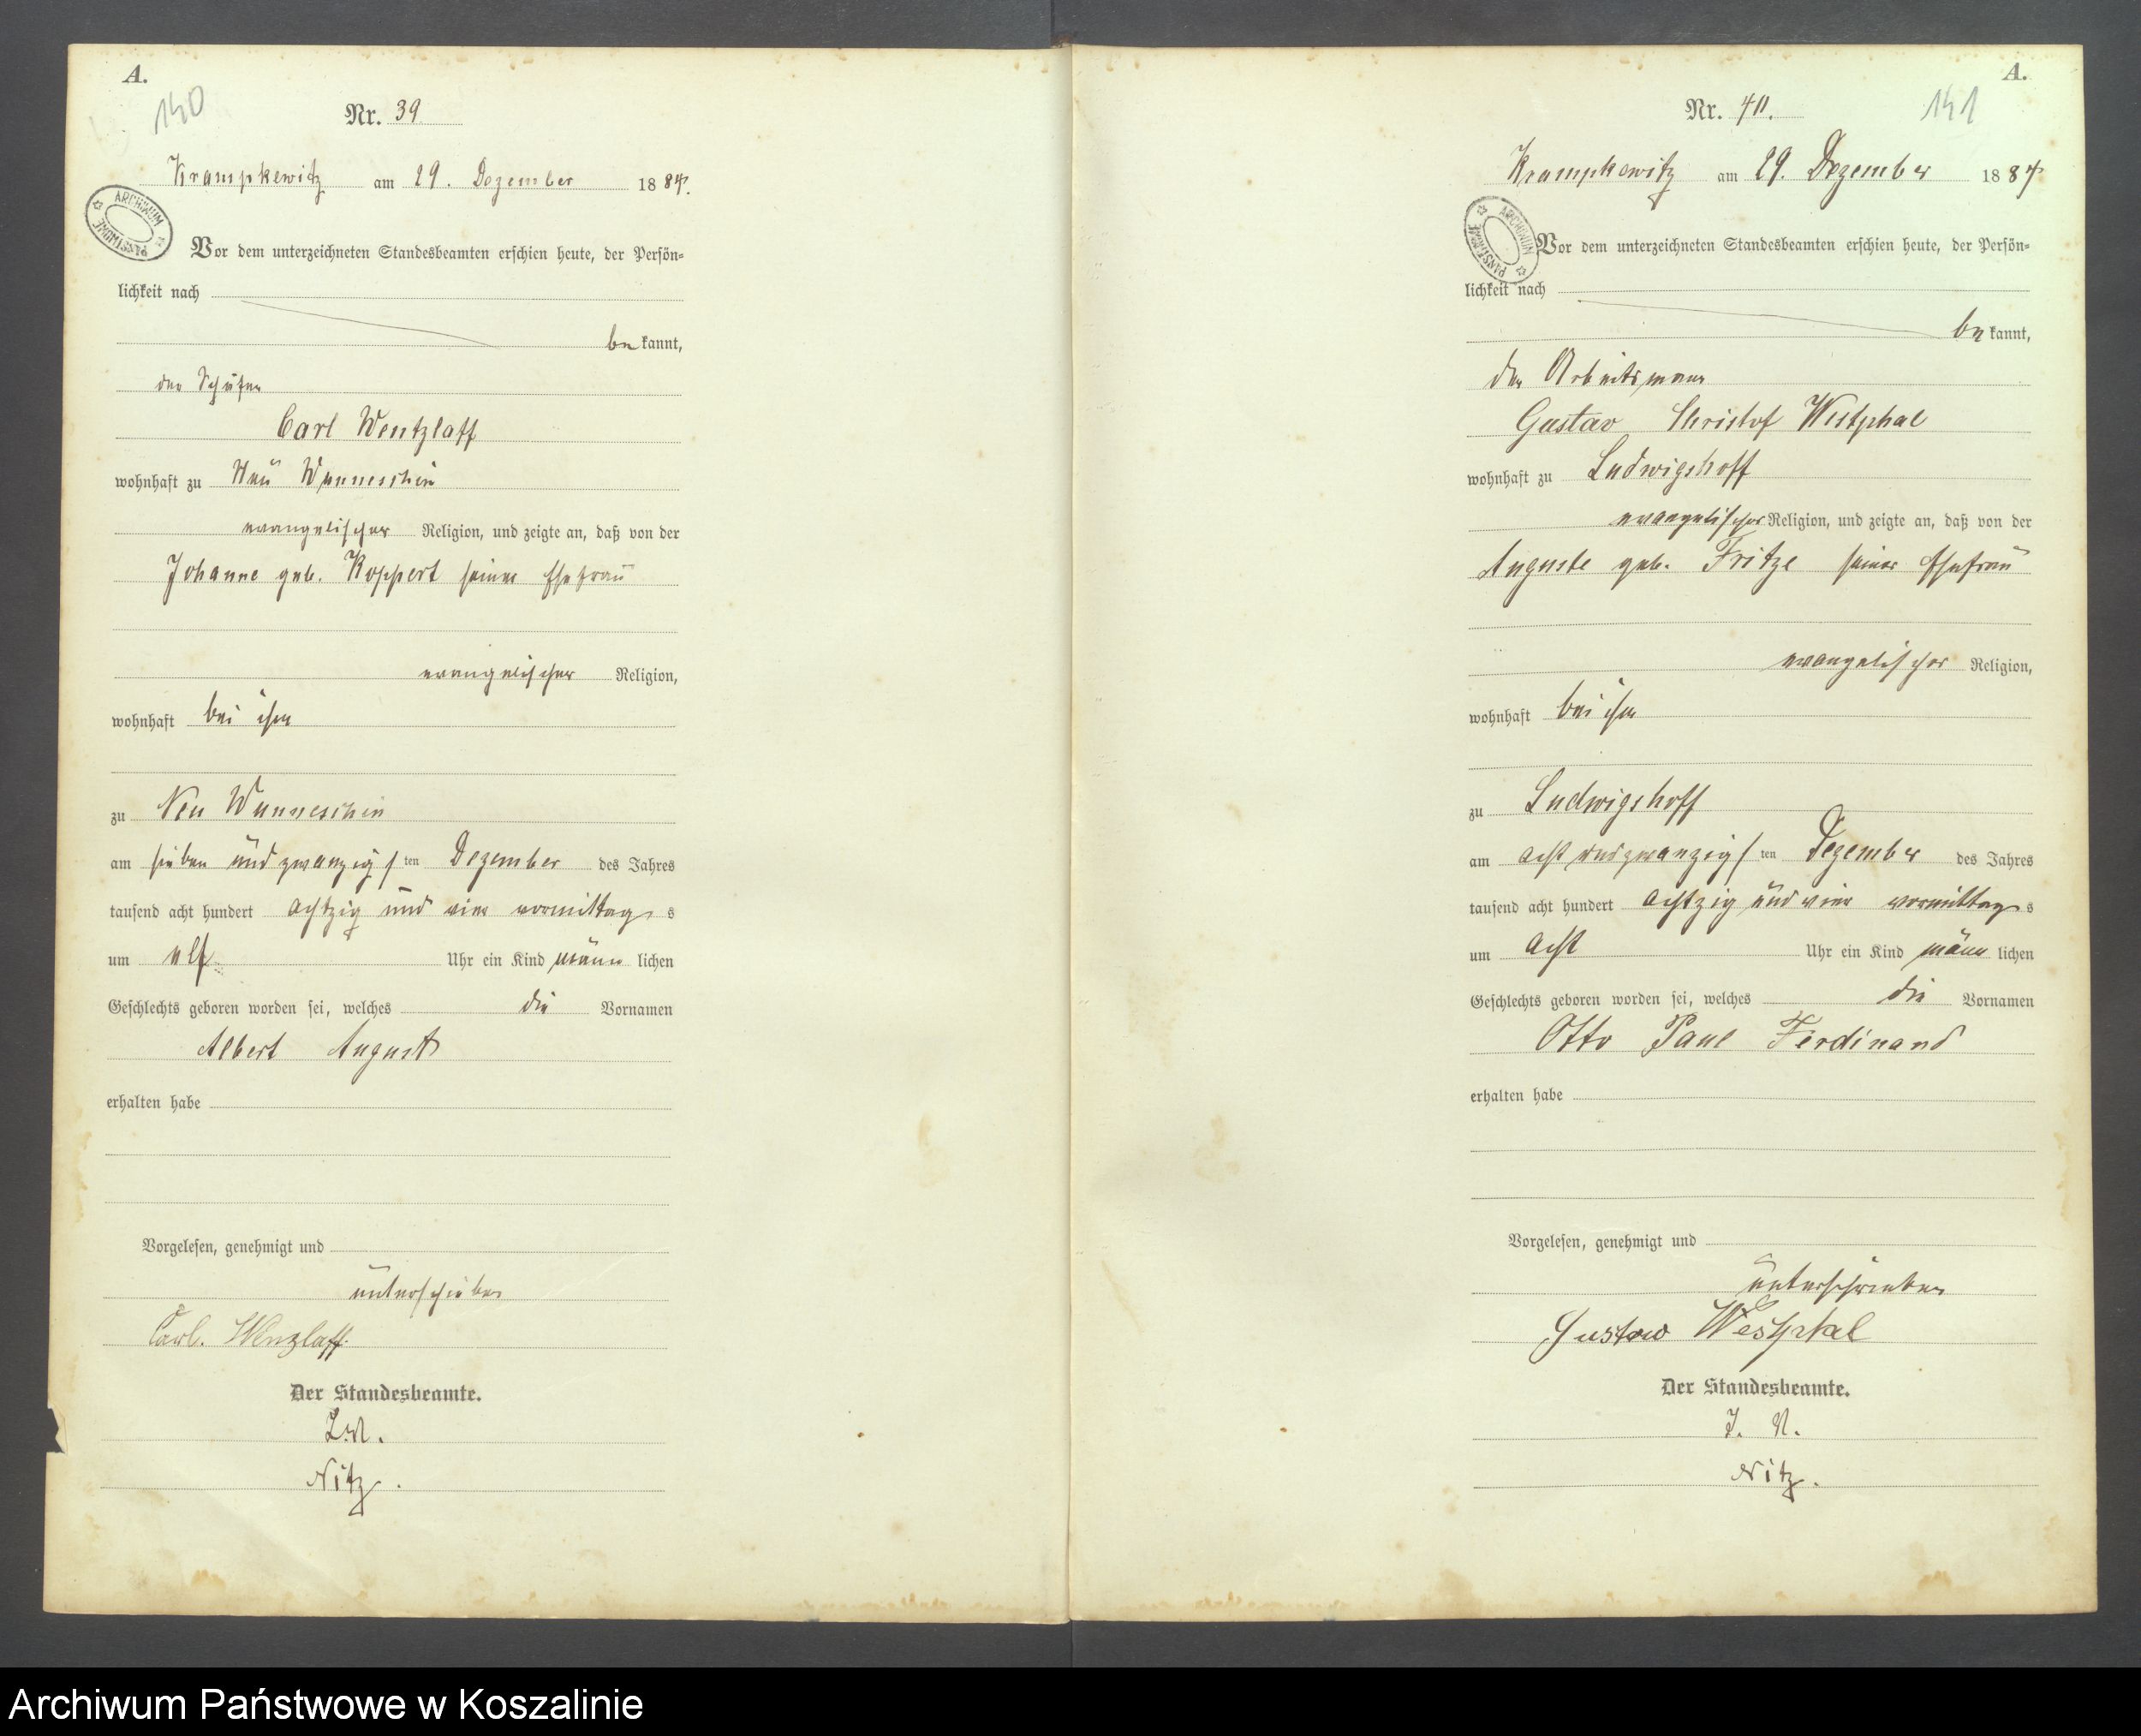 A.
140
Nr. 39
Krampkewitz am 29. Dezember 1884.
ARCHIWUM PAŃSTWOWE
Vor dem unterzeichneten Standesbeamten erschien heute, der Persön-
lichkeit nach
be kannt,
der
Carl Wentzlaff
wohnhaft zu Neu Wunneschin
evangelischer Religion, und zeigte an, daß von der
Johanne geb. Koppert seiner Ehefrau
evangelischer Religion,
wohnhaft bei ihm
zu Neu Wunneschin
am sieben und zwanzig ten Dezember des Jahres
tausend acht hundert achtzig und vier vormittag s
um elf Uhr ein Kind männ lichen
Geschlechts geboren worden sei, welches die Vornamen
Albert August
erhalten habe
Vorgelesen, genehmigt und
unterschieben
Carl. Wenzlaff.
Der Standesbeamte.
Nitz.
A.
141
Nr. 40.
Krampkewitz am 29. Dezember 1884
ARCHIWUM PAŃSTWOWE
Vor dem unterzeichneten Standesbeamten erschien heute, der Persön-
lichkeit nach
be kannt,
der Arbeitsmann
Gustav Christof Westphal
wohnhaft zu Ludwigshoff
evangelischer Religion, und zeigte an, daß von der
Auguste geb. Fritze seiner Ehefrau
evangelischer Religion,
wohnhaft bei ihm
zu Ludwigshoff
am acht und zwanzig ten Dezember des Jahres
tausend acht hundert achtzig und vier vormittag s
um acht Uhr ein Kind männ lichen
Geschlechts geboren worden sei, welches die Vornamen
Otto Paul Ferdinand
erhalten habe
Vorgelesen, genehmigt und
unterschrieben
Gustaw Westphal
Der Standesbeamte.
Nitz.
Archiwum Państwowe w Koszalinie